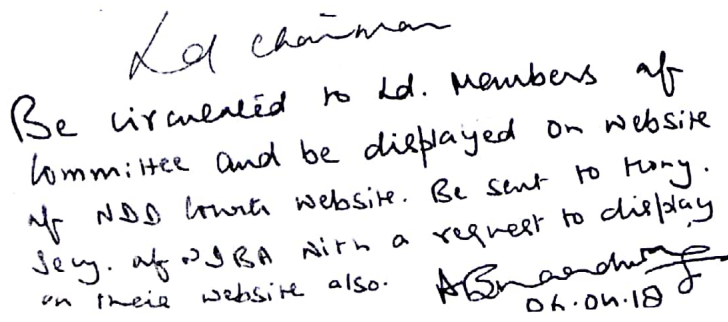 Ld Chairman
Be circulated to Ld. Members of
Committee and be displayed on website
of NDD Courts website. Be sent to Hony.
Secy. of NDBA with a request to display
on their website also.
06.04.18